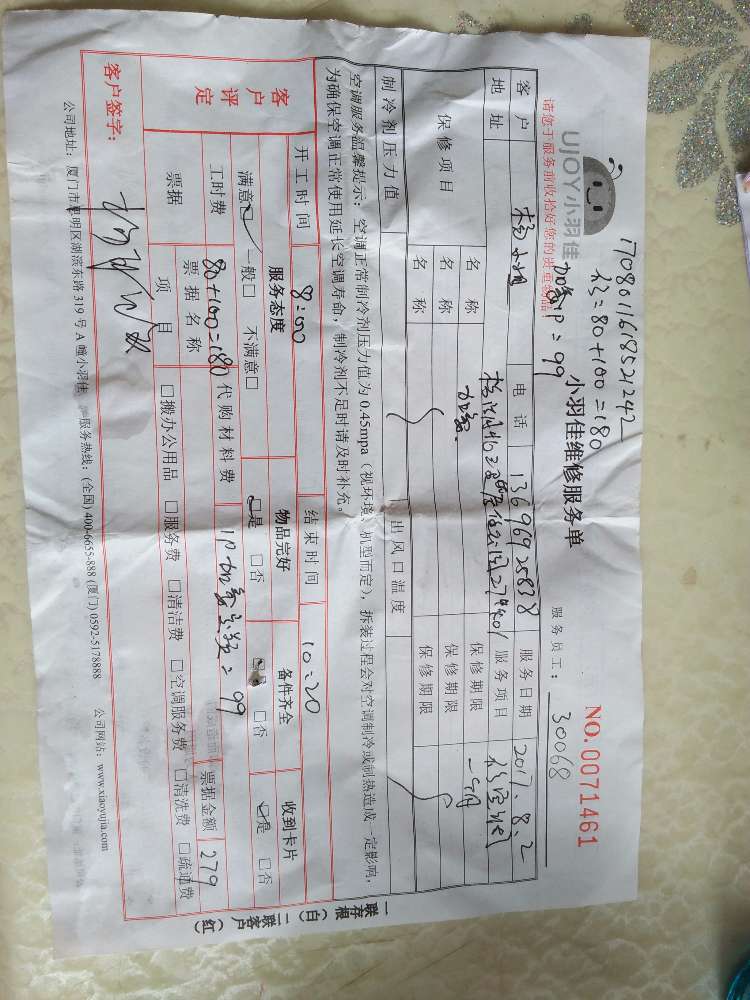 1708011618521242
移=80+100=180
加氨1P=99
UJOY小羽佳
请您于服务前收拾好您的贵重物品!
小羽佳维修服务单
NO.0071461
服务员工: 30068
客户 杨小姐 电话 13696925838 服务日期 2017.8.2
地址 服务项目 移空调
保修项目 名称 加氨 保修期限 一个月
名称 保修期限
名称 保修期限
制冷剂压力值 出风口温度
空调服务温馨提示:空调正常制冷剂压力值为0.45mpa(视环境、机型而定),拆装过程会对空调制冷或制热造成一定影响,
为确保空调正常使用延长空调寿命,制冷剂不足时请及时补充。
开工时间 8:00 结束时间 10:20
客户评定 服务态度 物品完好 备件齐全 收到卡片
满意☑ 一般□ 不满意□ ☑是 □否 □否 ☑是 □否
工时费 80+100=180 代购材料费 1P加氨 =99 票据金额 279
票据 票据名称
项目 □搬办公用品 □服务费 □清洁费 □空调服务费 □清洗费 □疏通费
客户签字:
公司地址:厦门市思明区湖滨东路319号A幢小羽佳 服务热线:(全国)400-6655-888 (厦门)0592-5178888 公司网站:www.xiaoyujia.com
一联存根(白) 二联客户(红)